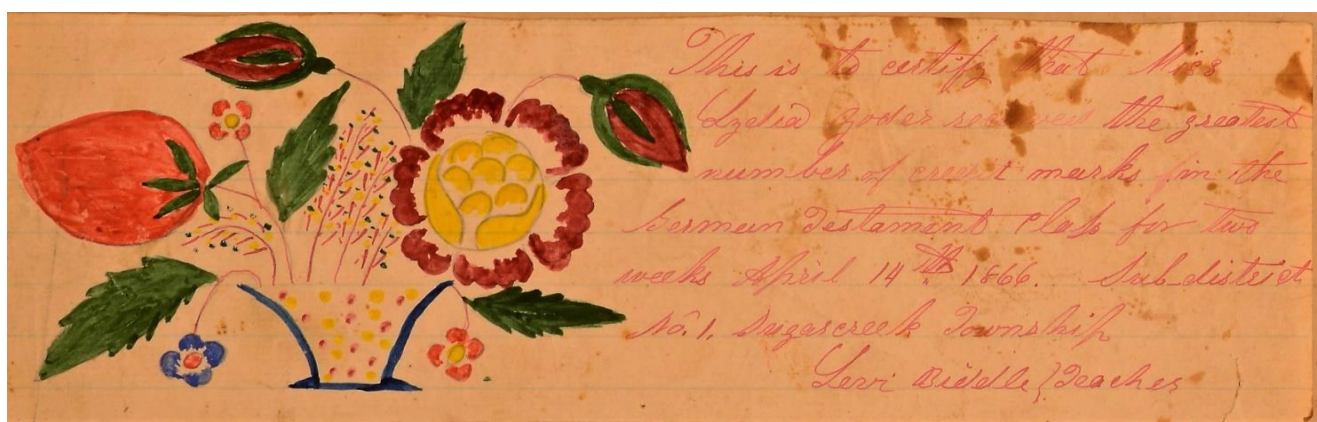 This is to certify that Miss
Lydia Yoder received the greatest
number of credit marks in the
German Testament Class for two
weeks April 14th 1866. Sub-district
No. 1. Sugarcreek Township
Levi Biddle } Teacher